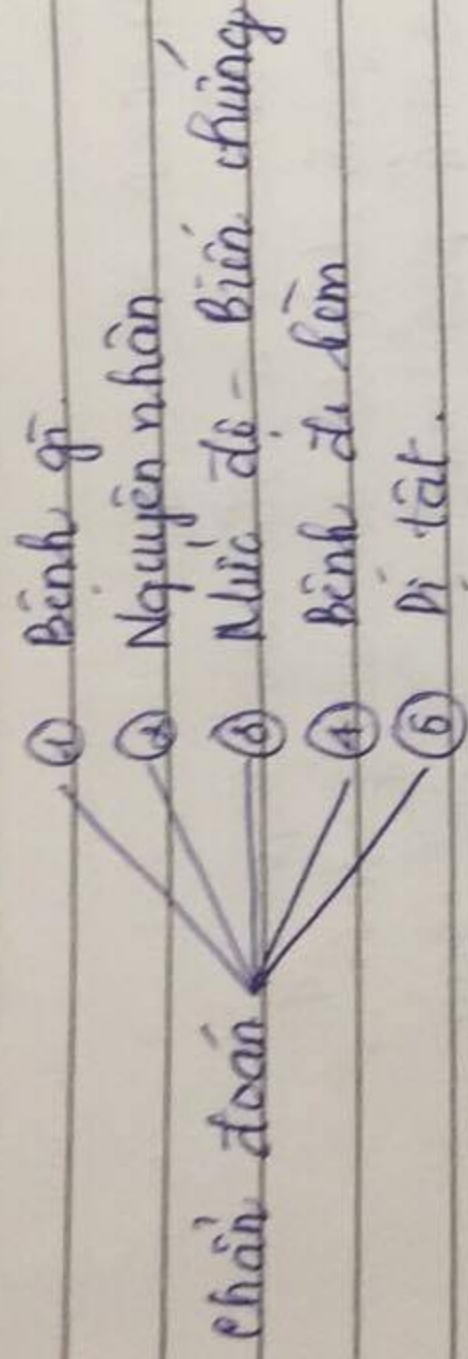 Chẩn đoán
① Bệnh gì.
② Nguyên nhân
③ Mức độ - Biến chứng
④ Bệnh đi kèm
⑤ Dị tật.